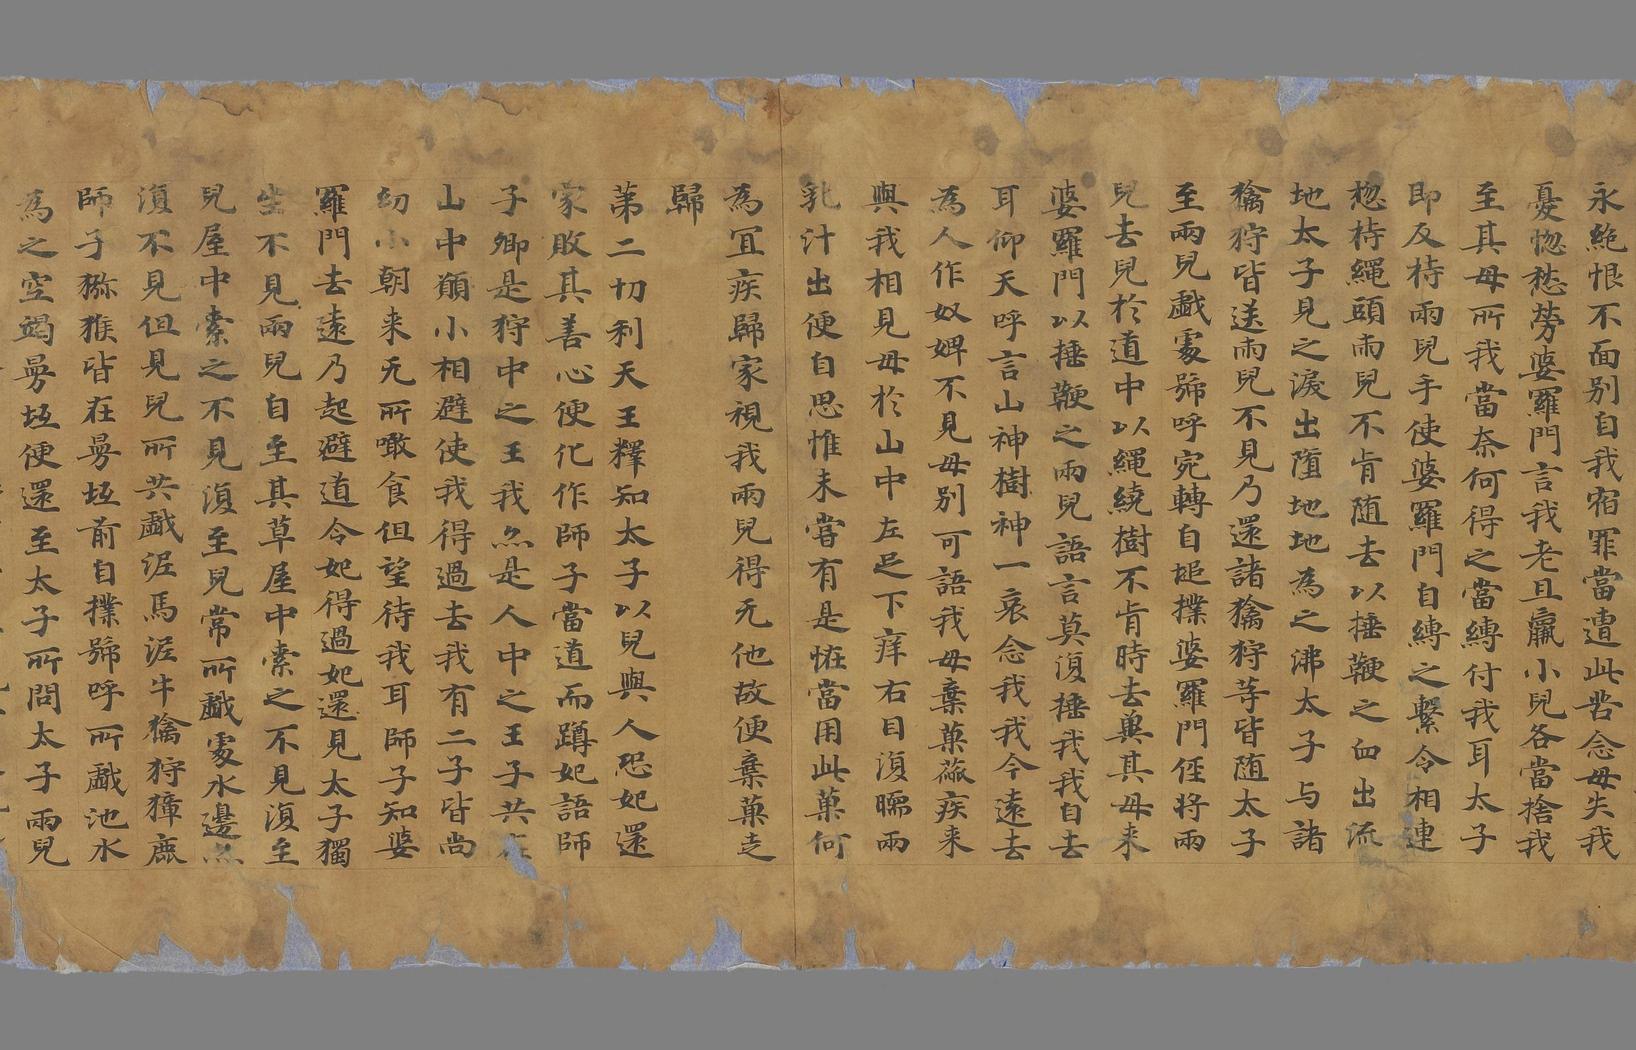 永絶恨不面別自我宿罪當遭此苦念母失我
憂惚愁勞婆羅門言我老且羸小兒各當捨我
至其母所我當奈何得之當縛付我耳太子
即反持兩兒手使婆羅門自縛之繫令相連
惣持繩頭兩兒不肯随去以捶鞭之血出流
地太子見之淚出墮地地為之沸太子与諸
禽狩皆送兩兒不見乃還諸禽狩等皆随太子
至兩兒戲處號呼宛轉自搥撲婆羅門徑將兩
兒去兒於道中以繩繞樹不肯時去兾其母来
婆羅門以捶鞭之兩兒語言莫復捶我我自去
耳仰天呼言山神樹神一哀念我我今遠去
為人作奴婢不見母別可語我母棄菓蓏疾来
與我相見母於山中左足下痒右目復瞤兩
乳汁出便自思惟未甞有是恠當用此菓何
為冝疾歸家視我兩兒得无他故便棄菓走
歸
第二切利天王釋知太子以兒與人恐妃還
家敗其善心便化作師子當道而蹲妃語師
子卿是狩中之王我亦是人中之王子共在
山中願小相避使我得過去我有二子皆尚
幼小朝来无所噉食但望待我耳師子知婆
羅門去遠乃起避道令妃得過妃還見太子獨
坐不見兩兒自至其草屋中索之不見復至
兒屋中索之不見復至兒常所戲處水邊亦
復不見但見兒所共戲泥馬泥牛禽狩獐鹿
師子獼猴皆在曼坻前自撲號呼所戲池水
為之空竭曼坻便還至太子所問太子兩兒